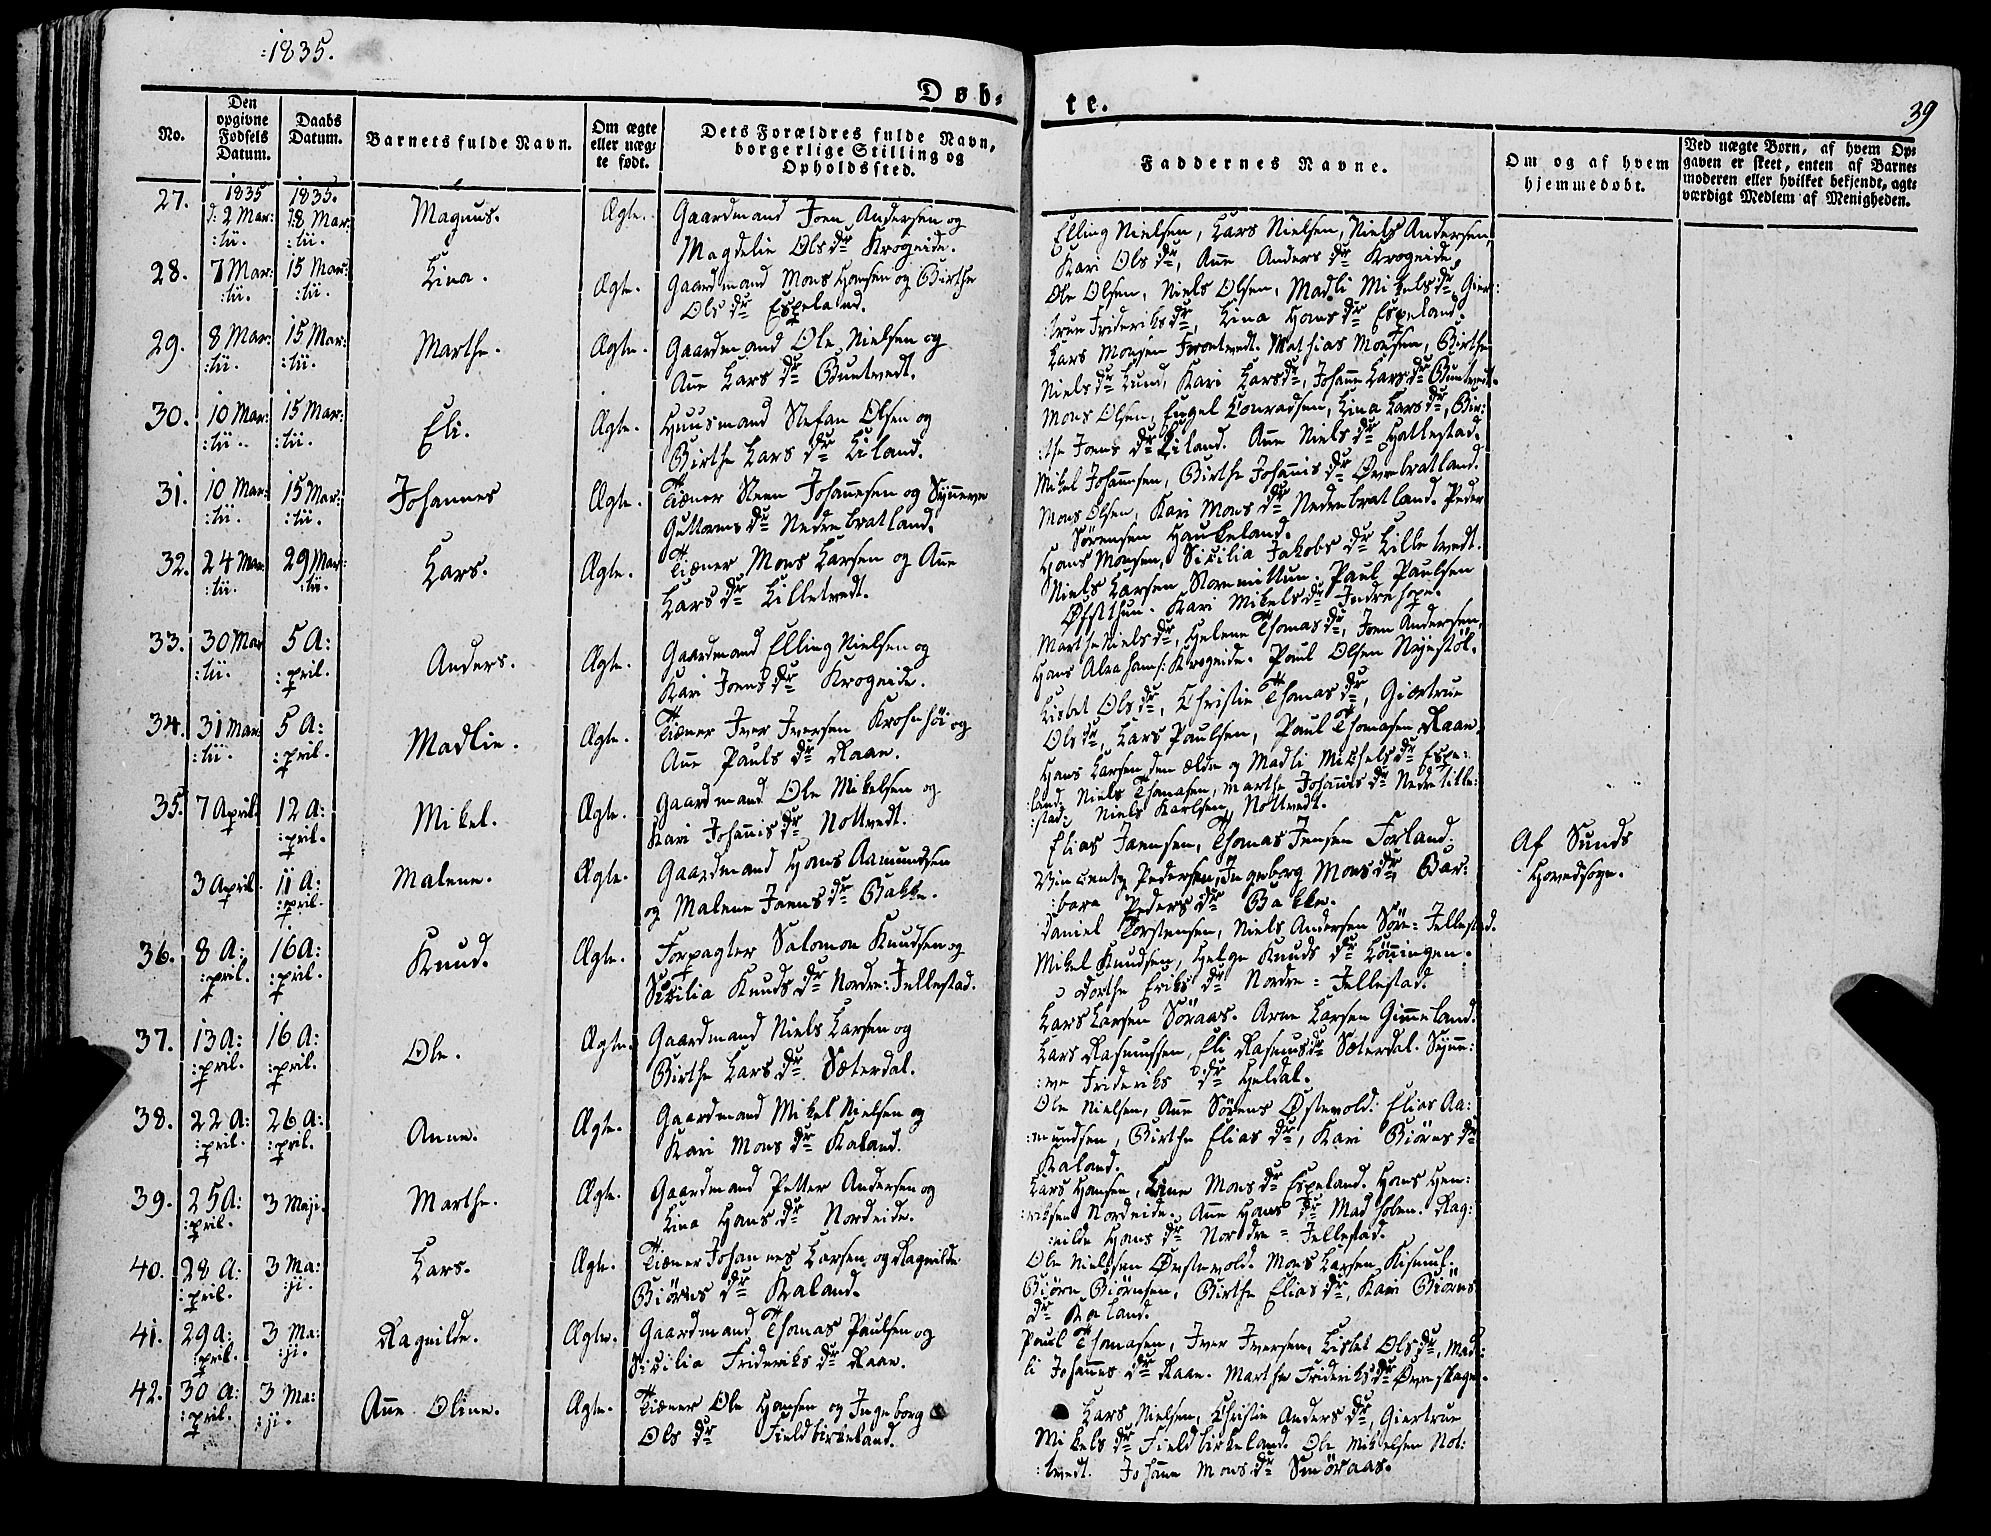 :1835.
Døb-
te.
39
No.
Den opgivne Fødsels Datum.
Daabs Datum.
Barnets fulde Navn.
Om ægte eller uæg-te født.
Dets Forældres fulde Navn, borgerlige Stilling og Opholdssted.
Faddernes Navne.
Om og af hvem hjemmedøbt.
Ved uægte Børn, af hvem Op-gaven er skeet, enten af Barne-moderen eller hvilket bekjendt, agt-værdigt Medlem af Menigheden.
27. 1835 d: 2 Mar: :tii. 1835. d: 8 Mar: :tii. Magnus. Ægte. Gaardmand Joen Andersen og
Magdelie Ols dr Krogeide.
Elling Nielsen, Lars Nielsen, Niels Andersen,
Kari Ols dr, Ane Anders dr Krogeide,
28. 7 Mar: :tii. 15 Mar: :tii. Lina. Ægte. Gaardmand Mons Hansen og Birthe
Ols dr Espeland.
Ole Olsen, Niels Olsen, Madli Mikels dr Gier:
:true Frideriks dr, Lina Hans dr Espeland.
29. 8 Mar: :tii. 15 Mar: :tii. Marthe. Ægte. Gaardmand Ole Nielsen og
Ane Lars dr Buntvedt.
Lars Monsen Troentvedt. Mathias Monsen, Birthe
Niels dr Lund, Kari Lars dr, Johane Lars dr Buntvedt.
30. 10 Mar: :tii. 15 Mar: :tii. Eli. Ægte. Huusmand Stefan Olsen og
Birthe Lars dr Liland.
Mons Olsen, Engel Conradsen, Lina Lars dr, Bir:
:the Joens dr Liland. Ane Niels dr Hatlestad.
31. 10 Mar: :tii. 15 Mar: :tii. Johannes Ægte. Tiæner Steen Johanesen og Synneve
Guttorms dr Nedrebratland.
Mikel Johannesen, Birthe Johannis dr Øvrebratland.
Mons Olsen, Kari Mons dr Nedrebratland. Peder
Sörensen Haukeland.
32. 24 Mar: :tii. 29 Mar: :tii. Lars. Ægte. Tiæner Mons Larsen og Ane
Lars dr Lilletvedt.
Hans Monsen, Sicilia Jakobs dr Lilletvedt.
Niels Larsen Storemittun. Paul Paulsen
Øfstthun. Kari Mikels dr Indrehope.
33. 30 Mar :tii. 5 A: :pril. Anders. Ægte. Gaardmand Elling Nielsen og
Kari Joens dr Krogeide.
Marthe Niels dr, Helene Thomas dr, Joen Andersen,
Hans Abrahams: Krogeide. Paul Olsen Nyestöl.
34. 31 Mar: :tii. 5 A: :pril. Madlie. Ægte. Tiæner Iver Iversen Krohnhöi og
Ane Pauls dr Raae.
Lisbet Ols dr, Christie Thomas dr, Giertrue
Ols dr, Lars Paulsen, Paul Thomasen Raae,
35. 7 April. 12 A: :pril. Mikel. Ægte. Gaardmand Ole Mikelsen og
Kari Johanis dr Nottvedt.
Hans Larsen den ældre og Madli Michels dr Espe:
:land. Niels Thomasen, Marthe Johanis dr Nedretitle:
:stad. Niels Karlsen, Nottvedt.
3 April. 11 A: :pril. Malene. Ægte. Gaardmand Hans Aamundsen
og Malene Jaens dr Bakke.
Elias Jaensen, Thomas Jensen Forland.
Vincentz Pedersen, Ingeborg Mons dr, Bar:
:bara Peders dr Bakke.
Af Sunds
Hovedsogn.
36. 8 A: :pril. 16 A: :pril. Knud. Ægte. Forpagter Salomon Knudsen og
Sicilia Knuds dr Nordre: Jellestad.
Daniel Torstensen, Niels Andersen Söre: Jellestad.
Mikel Knudsen, Helge Knuds dr Lönningen.
Dorthe Eriks dr Nordre = Jellestad.
37. 13 A: :pril. 16 A: :pril. Ole. Ægte. Gaardmand Niels Larsen og
Birthe Lars dr Sæterdal.
Lars Larsen Söraas. Arne Larsen Gimeland.
Lars Rasmussen, Eli Rasmus dr Sæterdal. Synne:
:ve Frideriks dr Heldal.
38. 22 A: :pril. 26 A: :pril. Anne. Ægte. Gaardmand Mikel Nielsen og
Kari Mons dr Kaland.
Ole Nielsen, Ane Sörens Østevold. Elias Aa:
:mundsen, Birthe Elias dr, Kari Biörns dr
Kaland.
39. 25 A: :pril. 3 Maji. Marthe. Ægte. Gaardmand Petter Andersen og
Lina Hans dr Nordeide.
Lars Hansen, Line Mons dr Espeland. Hans Hen:
:riksen Nordeide. Ane Hans dr Madholm. Rag:
:nilde Hans dr Nordre = Jellestad.
40. 28 A: :pril. 3 Ma: :ji. Lars. Ægte. Tiæner Johannes Larsen og Ragnilde
Biörns dr Kaland.
Ole Nielsen Østevold. Mons Larsen Kismul.
Biörn Biörnsen, Birthe Elias dr, Kari Biörns
dr Kaland.
41. 29 A: :pril. 3 Ma: :ji. Ragnilde. Ægte. Gaardmand Thomas Paulsen og
Sicilia Frideriks dr Raae.
Paul Thomasen, Iver Iversen, Lisbet Ols dr, Mad:
li Johannes dr Raae. Marthe Frideriks dr Øvreskage.
42. 30 A: :pril. 3 Ma: :ji. Ane Oline. Ægte. Tiæner Ole Hansen og Ingeborg
Ols dr Fieldbirkeland.
Lars Nielsen, Christie Anders dr, Giertrue
Mikels dr Fieldbirkeland. Ole Mikkelsen Not:
:tvedt. Johane Mons dr Smöraas.